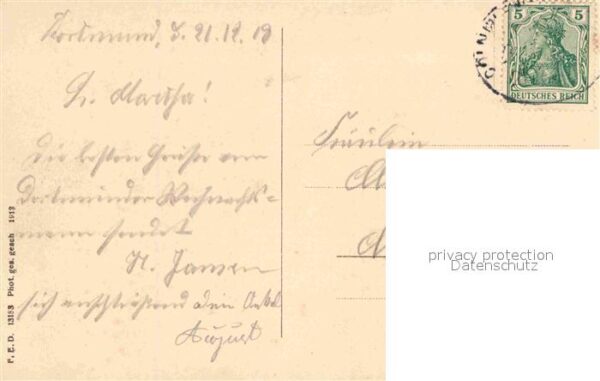 Dortmund, d. 21.12.13
L. Martha!
Die besten Grüße vom
Dortmunder Weihnachts-
mann sendet
H. Jansen
sich anschließend dein Onkel
August
Fräulein
5 5
DEUTSCHES REICH
privacy protection
Datenschutz
F. E. D. 13153 Phot. ges. gesch 1913